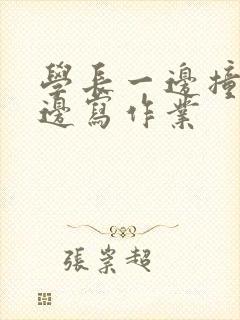 學長一邊撞
邊寫作業
張崇超